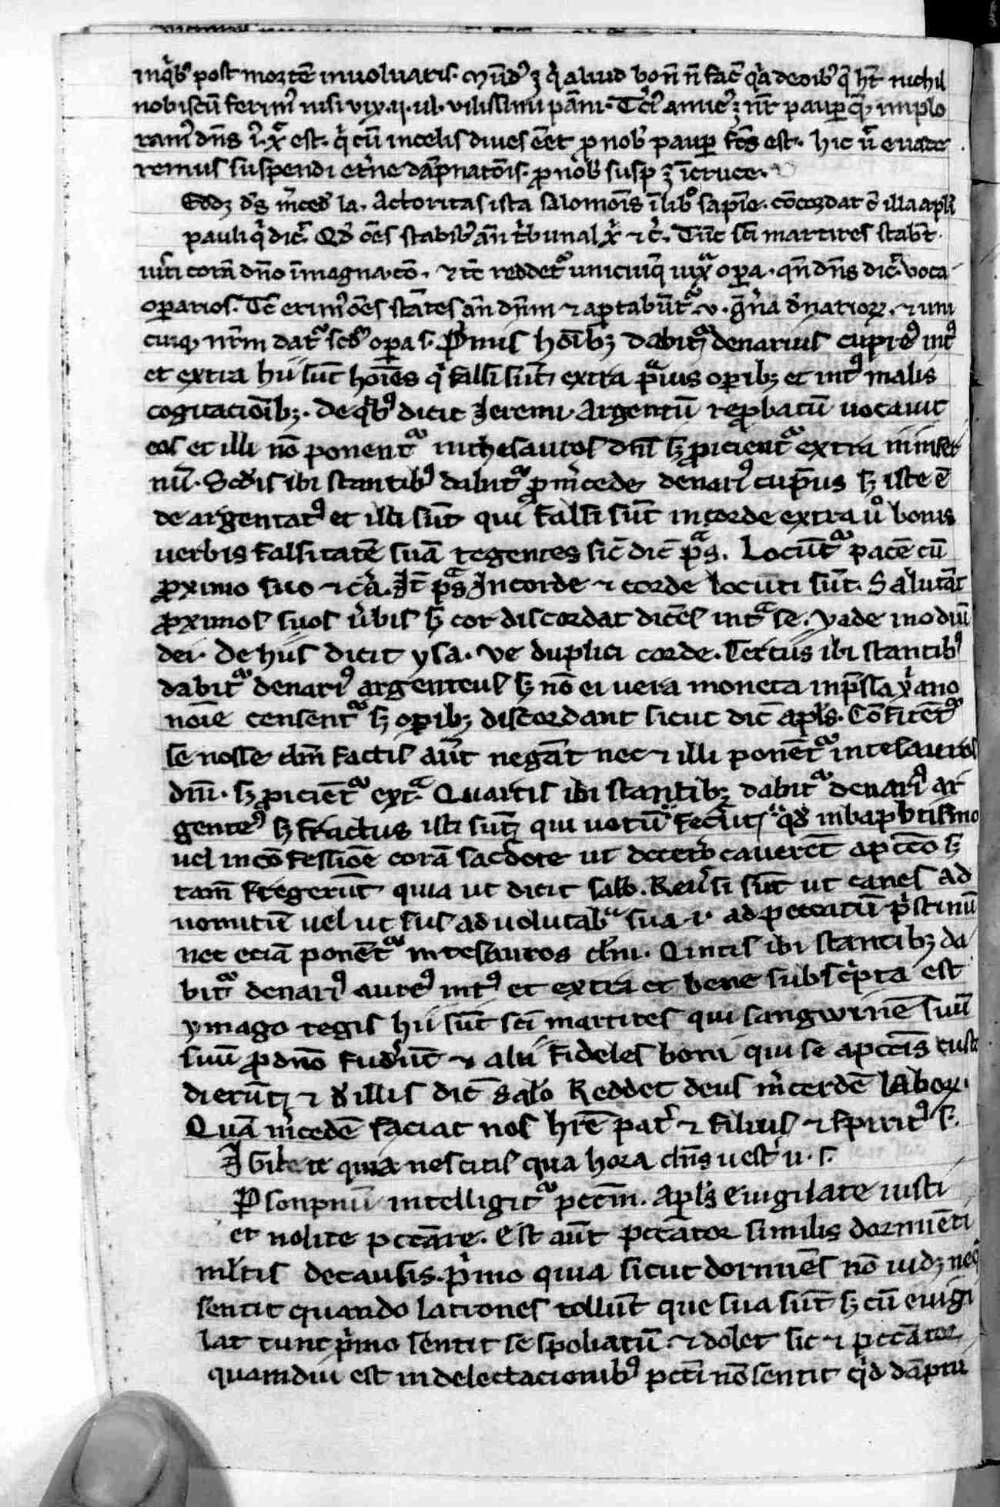 inqͥbꝫ post mortē inuoluaris. Mūdꝰ ꝫ qͥ aliud bonū n̄ fac̄ qͥa deoībꝫ q̄ hn̄t nichil
nobiscū ferimꝰ nisi vix .ij. ul̓ vilissimū pān̄i. Tc̄i amicꝰ ꝫ nr̄t pauperꝙ implo
ramꝰ dn̄s i. xp̄c est. qͥ cū in celis diues eēt pro nobꝫ pauper fc̄s est. hic u̓o euace
remus suspendi et̓ne dāpnatōis. pro nobꝫ susp ꝫ ī cruce.
Reddꝫ dꝰs m̓cedꝫ la. Actoritas ista salomōis ī libͦ sapīe. cōcordat cͥ illa apl̓i
pauli qͥ dic̄. Qd̓ oēs stabimꝰ an̄ t̓bunal xp̄i ⁊ c̓. Tūc sc̄i martires stabūt
iusti corā dn̄o ī magna .co. ⁊ tc̄ reddetᷣ unicuiqꝫ iuxᷓ opera. qn̄ dn̄s dic̄. Voca
operarios. Tc̄ erimꝰ oēs stātes an̄ dn̄m ⁊ aptabūtᷣ .v. gn̓a d̓nariorꝝ. ⁊ uni
cuiqꝫ nr̄m datᷣ scd̓m opera s. Primis hoībꝫ dabitᷣ denarius cupreꝰ intꝰ
et extra hii sūt hoīes qͥ falsi sūt extra prauis operibꝫ et intꝰ malis
cogitacioībꝫ. de qͥbꝰ dicit Jeremi. Argentū reprobatū uocauit
eos et illi nō ponentᷣ in thesauros dn̄i sꝫ proicientᷣ extra in infer
nū. Scd̓is ibi stantibꝰ dabitᷣ pro m̓cede denariꝰ cupreus sꝫ iste ē
deargentatꝰ et illi sūt qui falsi sūt in corde extra u̓o bonis
uerbis falsitatē suā tegentes sic̄ dic̄ pᷓs. Locūtᷣ pacē cū
proximo suo ⁊ c̓a. Jt̄ pᷓs In corde ⁊ corde locuti sūt. Salutāt
proximos suos u̓bis sꝫ cor discordat dicēs intᷓ se. vade in odiū
dei. de hiis dicit ysa. ve duplici corde. Terciis ibi stantibꝰ
dabitᷣ denariꝰ argenteus sꝫ nō ei uera moneta inp̄ssa xͥano
noīe censentᷣ sꝫ operibꝫ discordant sicut dic̄ apl̓s. Cōfitētᷣ
se nosse dm̄ factis aūt negāt nec ⁊ illi ponētᷣ in tesauros
dn̄i. sꝫ proicietᷣ extᷓ. Quartis ibi stantibꝫ dabitᷣ denariꝰ ar
genteꝰ sꝫ fractus isti sūt qui uotū fec̓ūt qd̓ in baptismo
uel in cōfessione corā sac̓dote ut deteͬo cauerēt a pcc̄o sꝫ
tam̄ fregerūt quia ut dicit salo. Reu̓si sūt ut canes ad
uomitū uel ut sus ad uolutabͬa sua .i. ad peccatū p̓stinū
nec eciā ponētᷣ in tesauros dn̄i. Qintis ibi stantibꝫ da
bitᷣ denariꝰ aureꝰ intꝰ et extra et bene subsc̓pta est
ymago regis hii sūt sc̄i martires qui sangwinē suū
suū pro dn̄o fuderūt ⁊ alii fideles boni qui se a pcc̄is custo
dierūt ⁊ d̓ illis dic̄ salo Reddet deus m̓cerdē laborꝝ.
Quā m̓cedē faciat nos hr̄e pat̓ ⁊ filius ⁊ spiritꝰ s.
Vigilate quia nescitis qua hora dn̄s uest̓ u. s.
Per sompnū intelligitᷣ pcc̄m. Apl̓s Euigilate iusti
et nolite pccāre. Est aūt pccātor similis dormiēti
ml̓tis de causis. p̓mo quia sicut dormiēs nō uidꝫ neqꝫ
sentit quando latrones tollūt que sua sūt sꝫ cū euigi
lat tunc p̓mo sentit se spoliatū ⁊ dolet sic ⁊ pccātor
quamdiu est in delectacionibꝰ pcc̄i nō sentit qd̓ dāpni